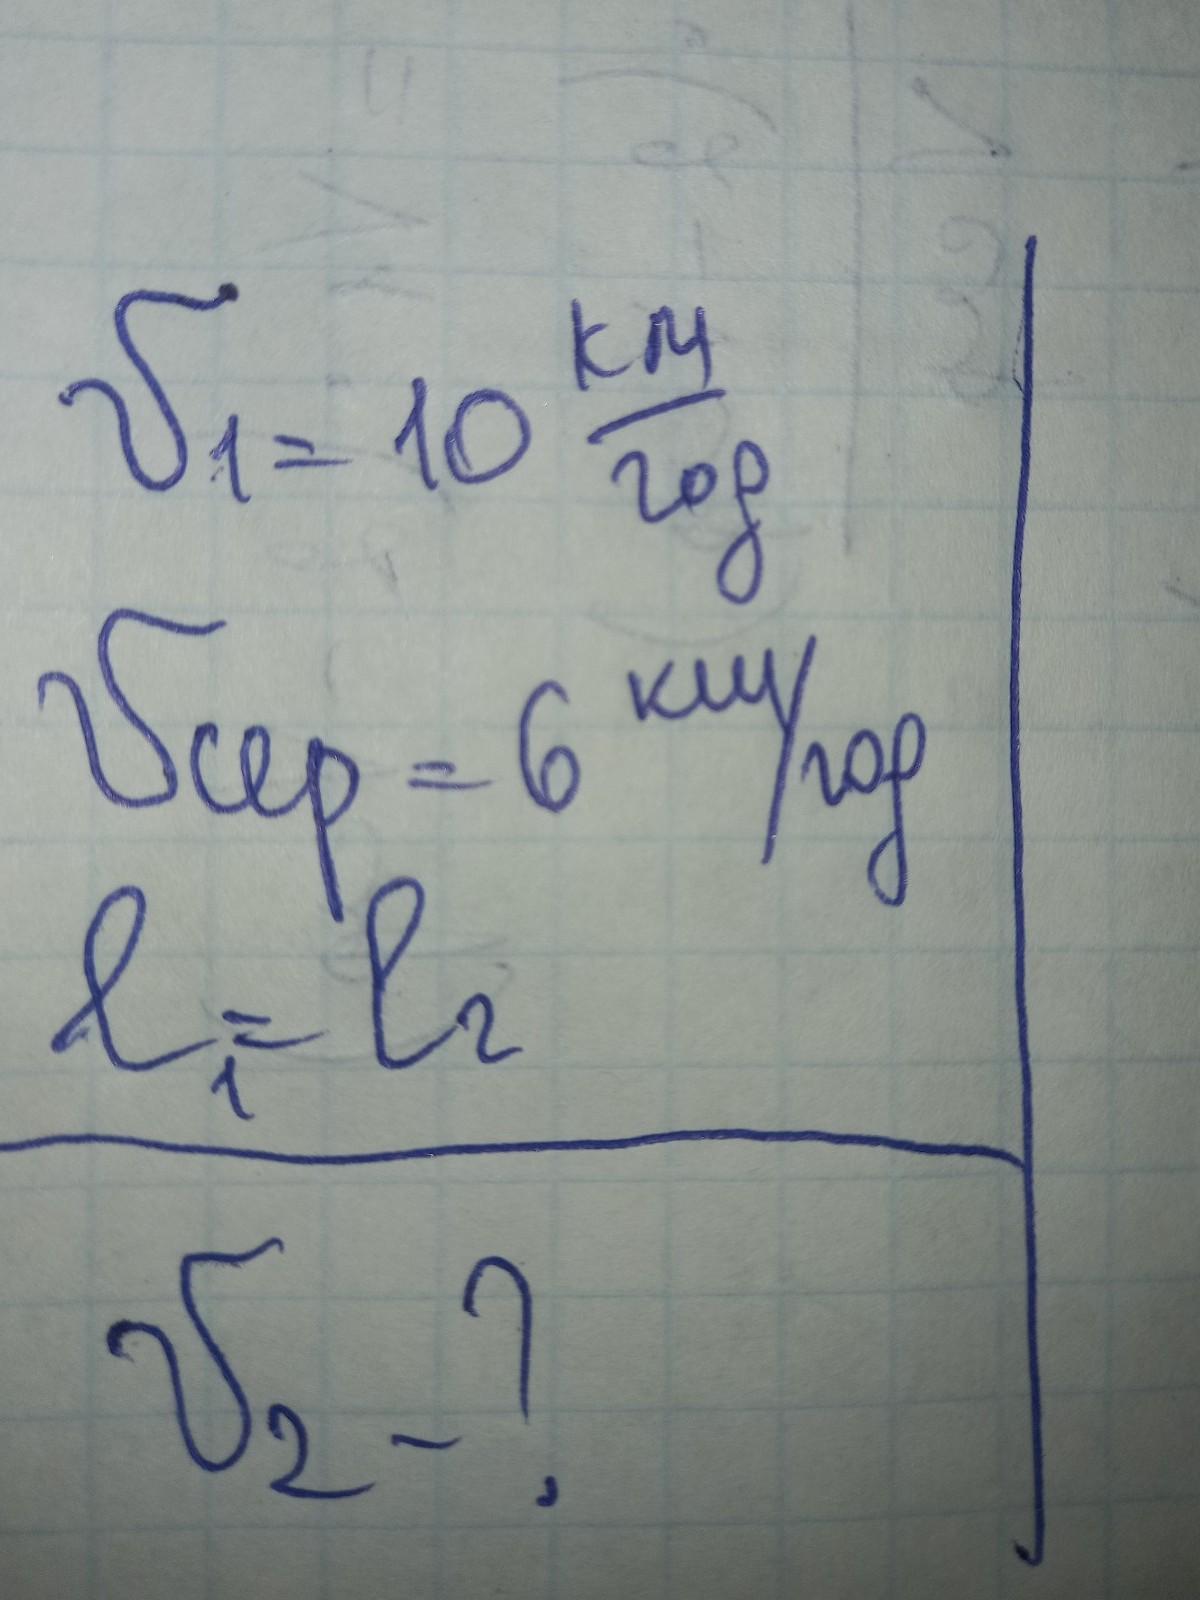 v₁ = 10 км/год
vсер = 6 км/год
l₁ = l₂
v₂ - ?